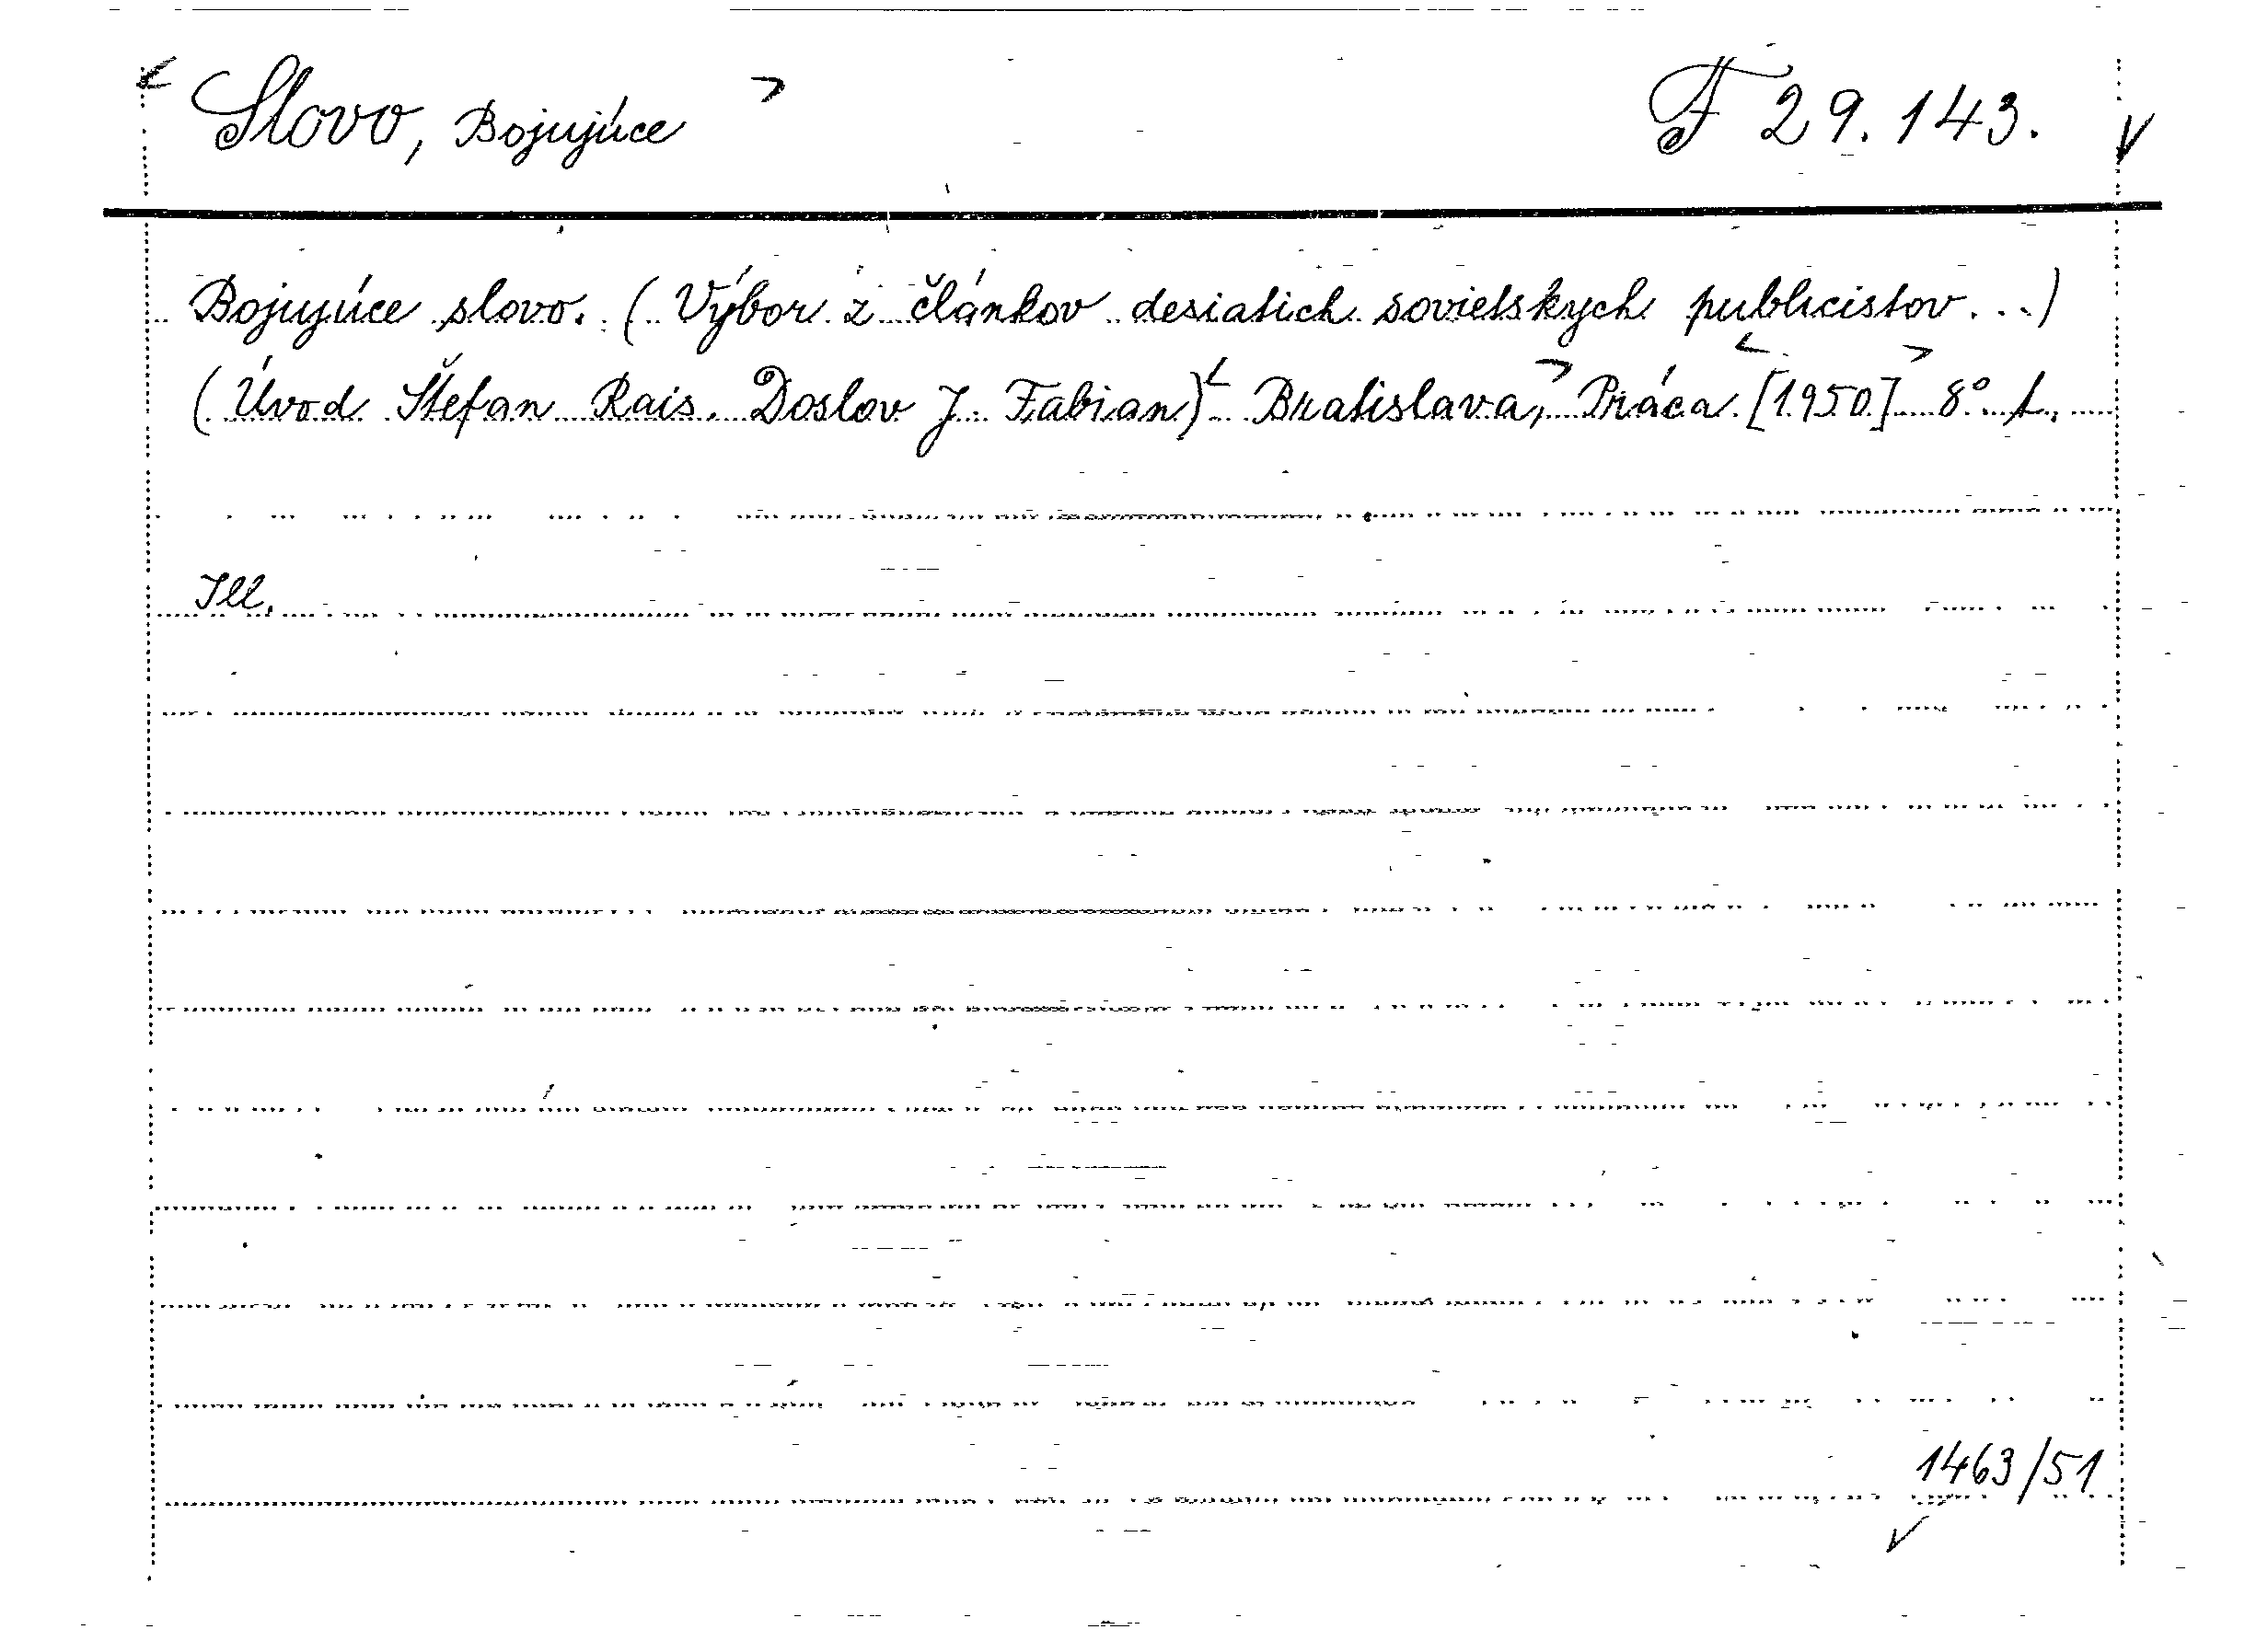 < Slovo, Bojujúce > F 29.143.
Bojujúce slovo. (Výbor z článkov desiatich sovietskych publicistov...)
(Úvod Štefan Rais. Doslov J. Fabian) < Bratislava, > Práca < [1950] > 8°
Ill.
1463/51